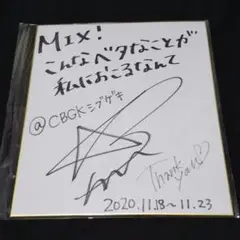 MIX!
こんなベタなことが
私におこるなんて
@CBGKシブゲキ
Thank you♡
2020.11.18~11.23